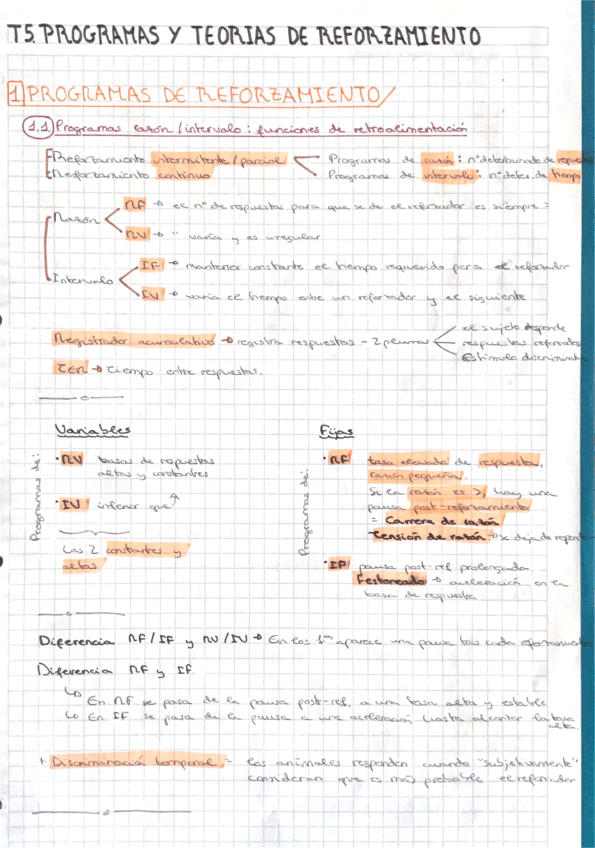 T5. PROGRAMAS Y TEORIAS DE REFORZAMIENTO
1 PROGRAMAS DE REFORZAMIENTO
1.1 Programas razón/intervalo: funciones de retroalimentación
Reforzamiento intermitente/parcial
Programas de razón: nº determinado de
Reforzamiento continuo
Programas de intervalo: nº deter. de tiempo
Razón
RF → el nº de respuestas para que se de el reforzador es siempre =
RV → " varía y es irregular
Intervalo
IF → mantener constante el tiempo requerido para el reforzador
IV → varía el tiempo entre un reforzador y el siguiente
Registrador acumulativo → registra respuestas - 2 plumas
el sujeto responde
respuestas reforzadas
Estímulo
TER → tiempo entre respuestas.
Variables
Fijas
Programas de:
· RV tasas de respuestas
altas y constantes
· IV inferior que
Las 2 constantes y
altas
Programas de:
· RF tasa elevada de respuestas,
razón pequeña.
Si la razón es >, hay una
pausa post-reforzamiento
= Carrera de razón
-Tensión de razón → se deja de
· IF pausa post-ref prolongada
Festoneado → aceleración en la
tasa de respuesta
Diferencia RF/IF y RV/IV → En las 1ªs aparece una pausa tras cada reforzamiento
Diferencia RF y IF
↳ En RF se pasa de la pausa post-ref. a una tasa alta y estable
↳ En IF se pasa de la pausa a una aceleración hasta alcanzar la tasa
alta.
+ Discriminació temporal = los animales responden cuando "subjetivamente"
consideran que es más probable el reforzador